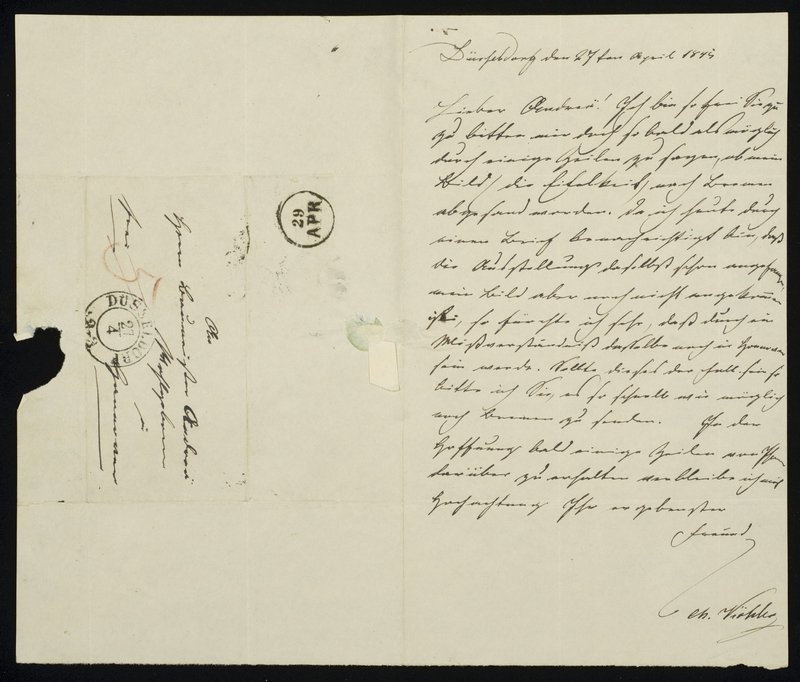 Düsseldorf den 27ten April 1845
Lieber Andreä! Ich bin so frei Sie zu
zu bitten mir doch so bald als möglich
durch einige Zeilen zu sagen, ob mein
Bild, die nach Bremen
abgesandt worden. Da ich heute durch
einen Brief benachrichtigt bin, daß
die Ausstellung daselbst schon angefangen
mein Bild aber noch nicht angekommen
ist, so fürchte ich sehr, daß durch ein
Mißverständniß dasselbe noch in Hannover
sein werde. Sollte dieses der Fall sein so
bitte ich Sie, es so schnell wie möglich
nach Bremen zu senden. In der
Hoffnung bald einige Zeilen von Ihnen
darüber zu erhalten verbleibe ich mit
Hochachtung Ihr ergebenster
Freund
Ch. Köhler
An
Herrn Baumeister Andreä
Wohlgeboren
in
Hannover
frei
DUSSELDORF
27
4
29
APR